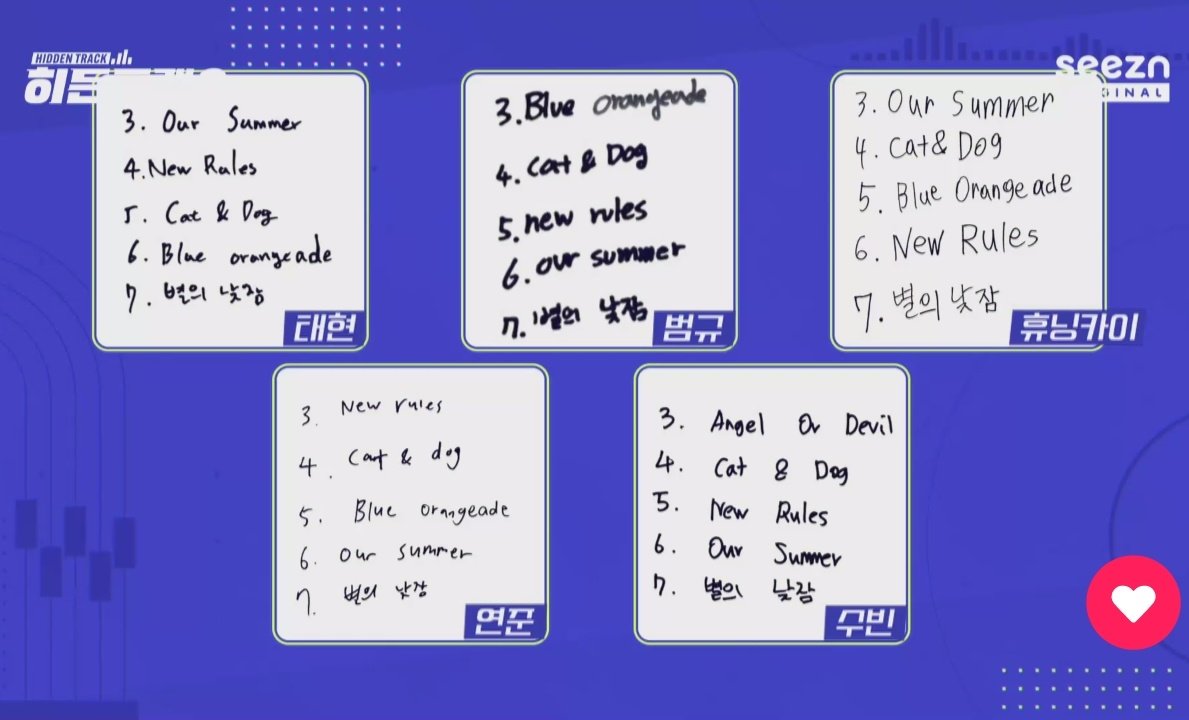 HIDDEN TRACK
seezn
3. Our Summer
4. New Rules
5. Cat & Dog
6. Blue orangeade
7. 별의 낮잠
태현
3. Blue orangeade
4. Cat & Dog
5. new rules
6. our summer
7. 별의 낮잠
범규
3. Our Summer
4. Cat & Dog
5. Blue Orangeade
6. New Rules
7. 별의 낮잠
휴닝카이
3. New rules
4. Cat & dog
5. Blue orangeade
6. our summer
7. 별의 낮잠
연준
3. Angel Or Devil
4. Cat & Dog
5. New Rules
6. Our Summer
7. 별의 낮잠
수빈